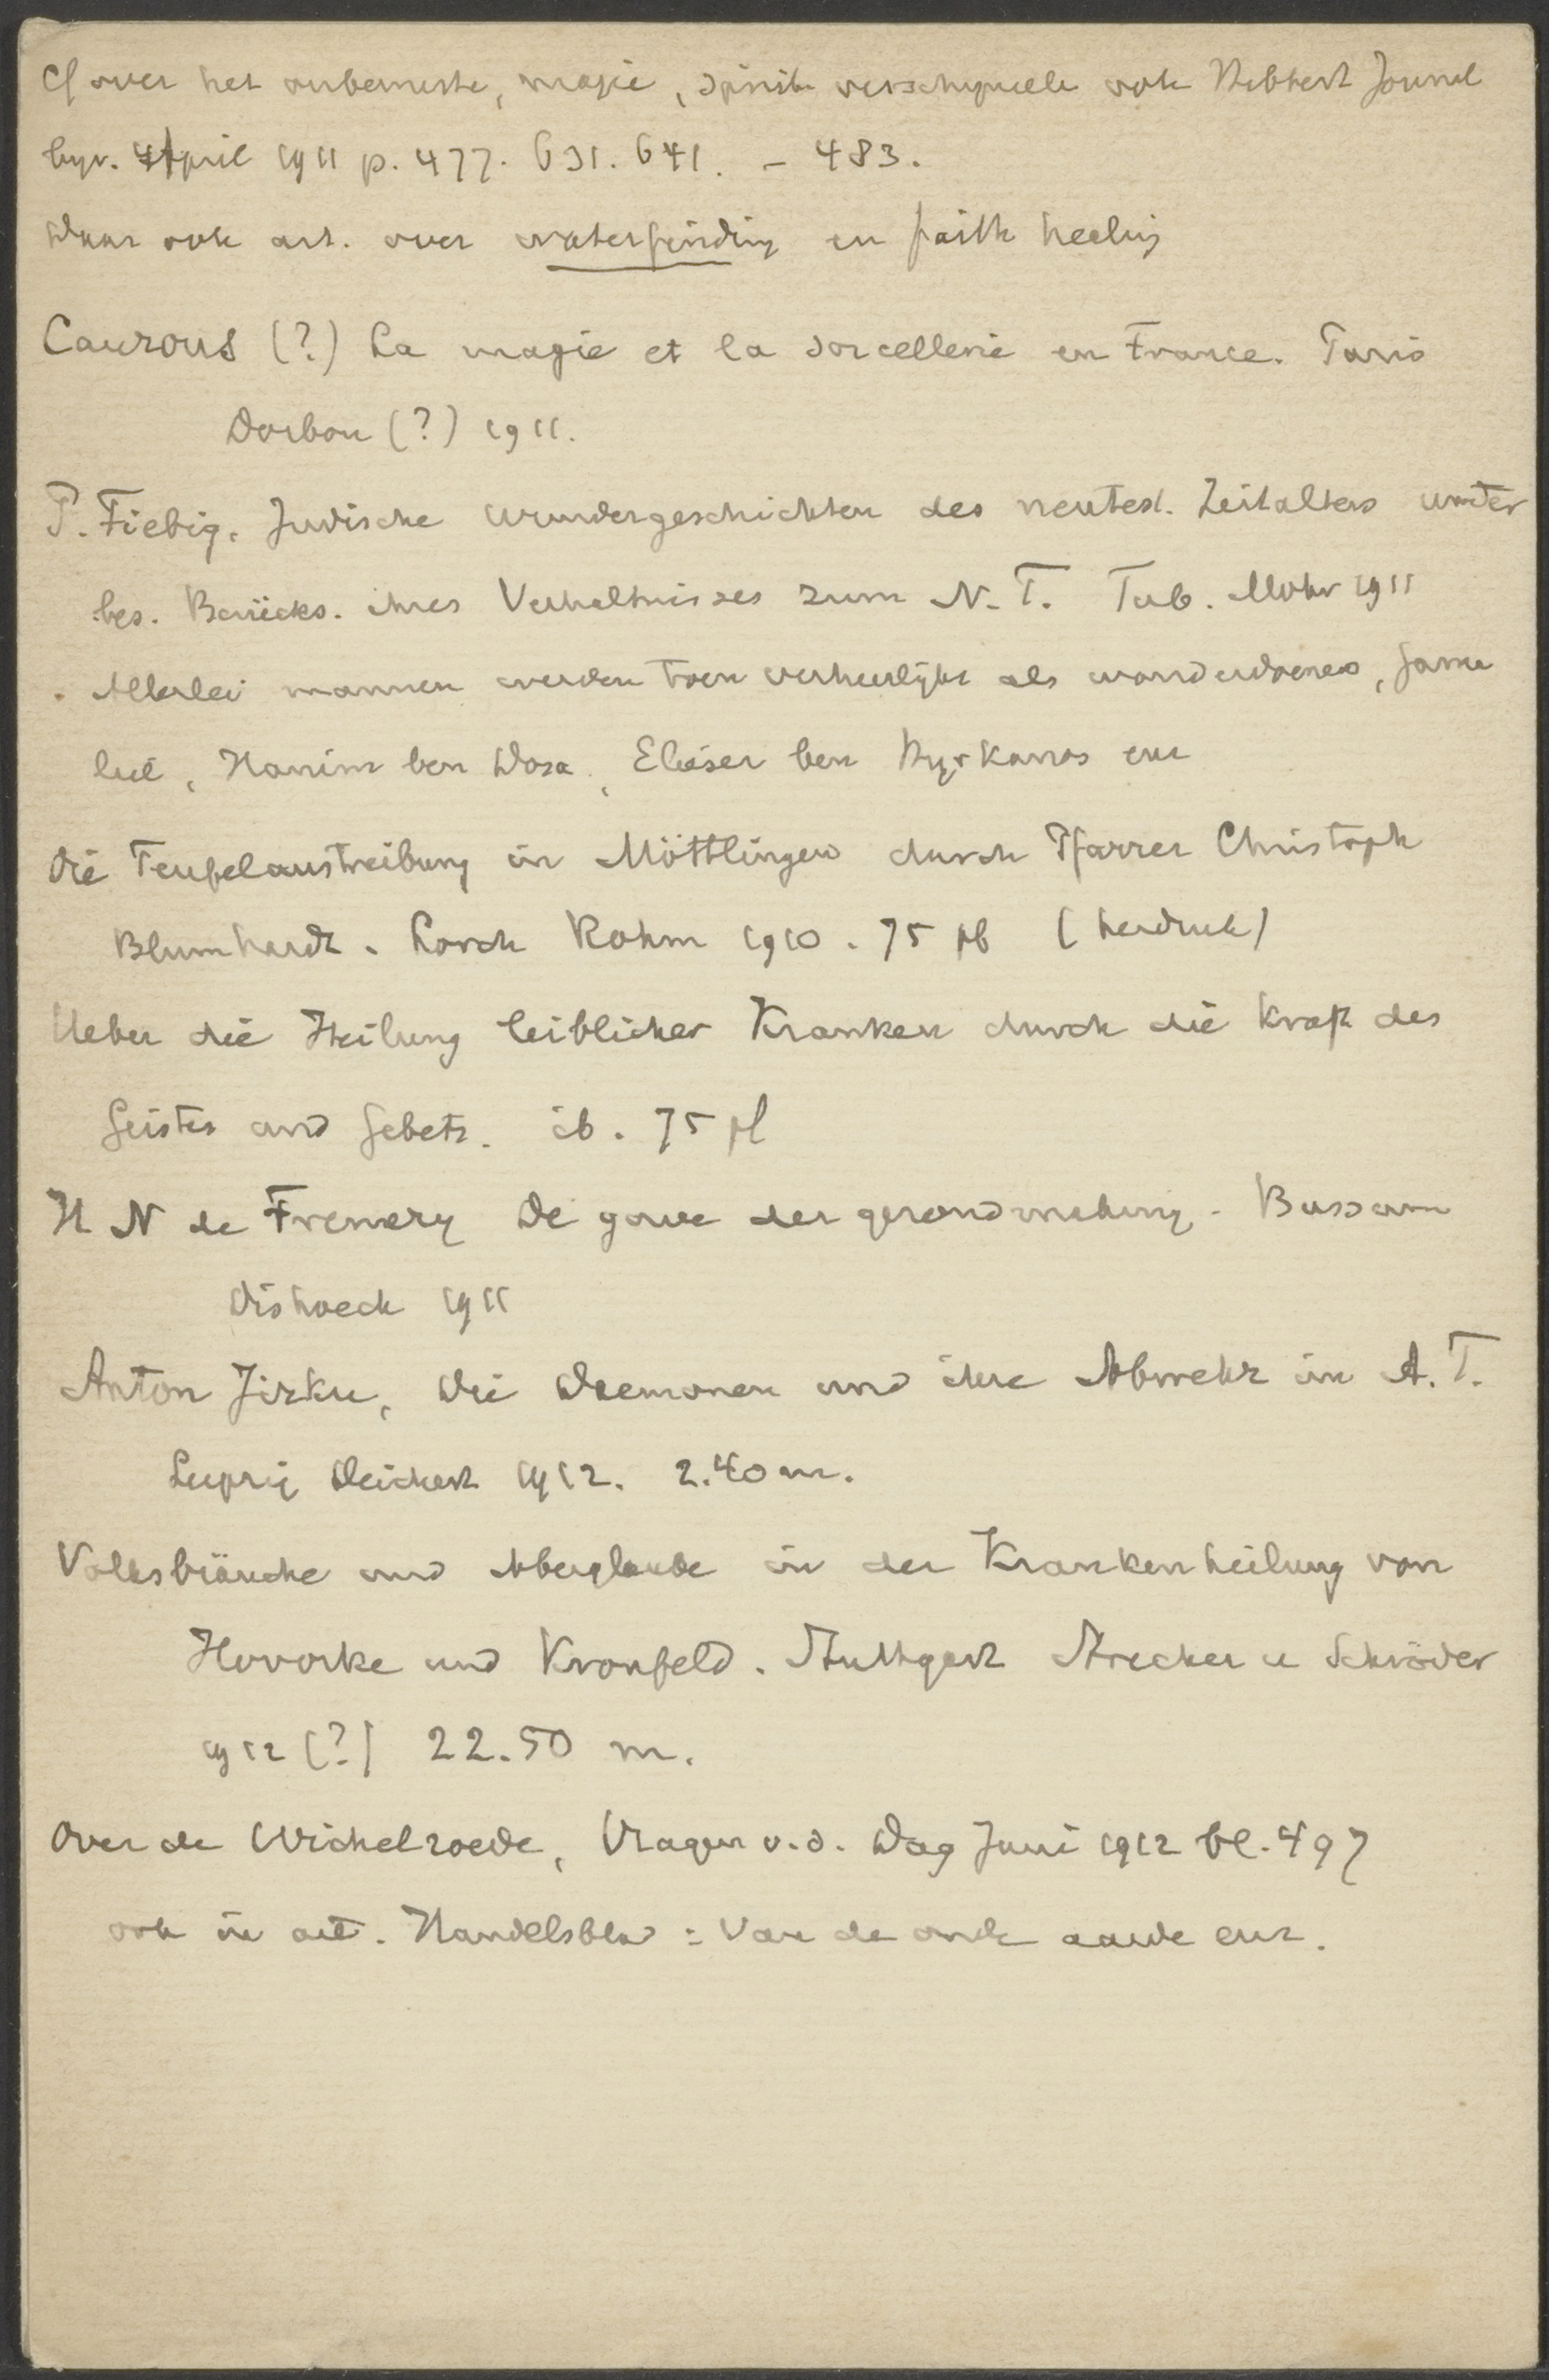 Cf over het onbewuste, magie, spirit. verschijnselen ook Hibbert Journal
bijv. April 1911 p. 477. 631. 641. - 483.
Waar ook art. over waterfinding en faith healing
Cauzous (?) La magie et la sorcellerie en France. Paris
Dorbon (?) 1911.
P. Fiebig. Judische Wundergeschichten des neutest. Zeitalters unter
bes. Berücks. ihres Verhaltnisses zum N. T. Tub. Mohr 1911
. Allerlei mannen werden toen verheerlijkt als wonderdoeners, Gama
liel, Hanina ben Dosa, Elieser ben Hyrkanos enz
Die Teufelaustreibung in Möttlingen durch Pfarrer Christoph
Blumhardt. Lorch Rohm 1910. 75 pf (herdruk)
Ueber die Heilung leiblicher Kranken durch die Kraft des
Geistes und Gebets. ib. 75 pf
H N de Fremery De gave der gezondmaking - Bussum
Dishoeck 1911
Anton Jirku, Die Daemonen und ihre Abwehr im A. T.
Leipzig Deichert 1912. 2.40 m.
Volksbräuche und Aberglaube in der Krankenheilung von
Hovorka und Kronfeld. Stuttgart Strecker u Schröder
1912 (?) 22.50 m.
Over de Wichelroede, Vragen v. d. Dag Juni 1912 bl. 497
ook in art. Handelsblad: Van de oude aarde enz.